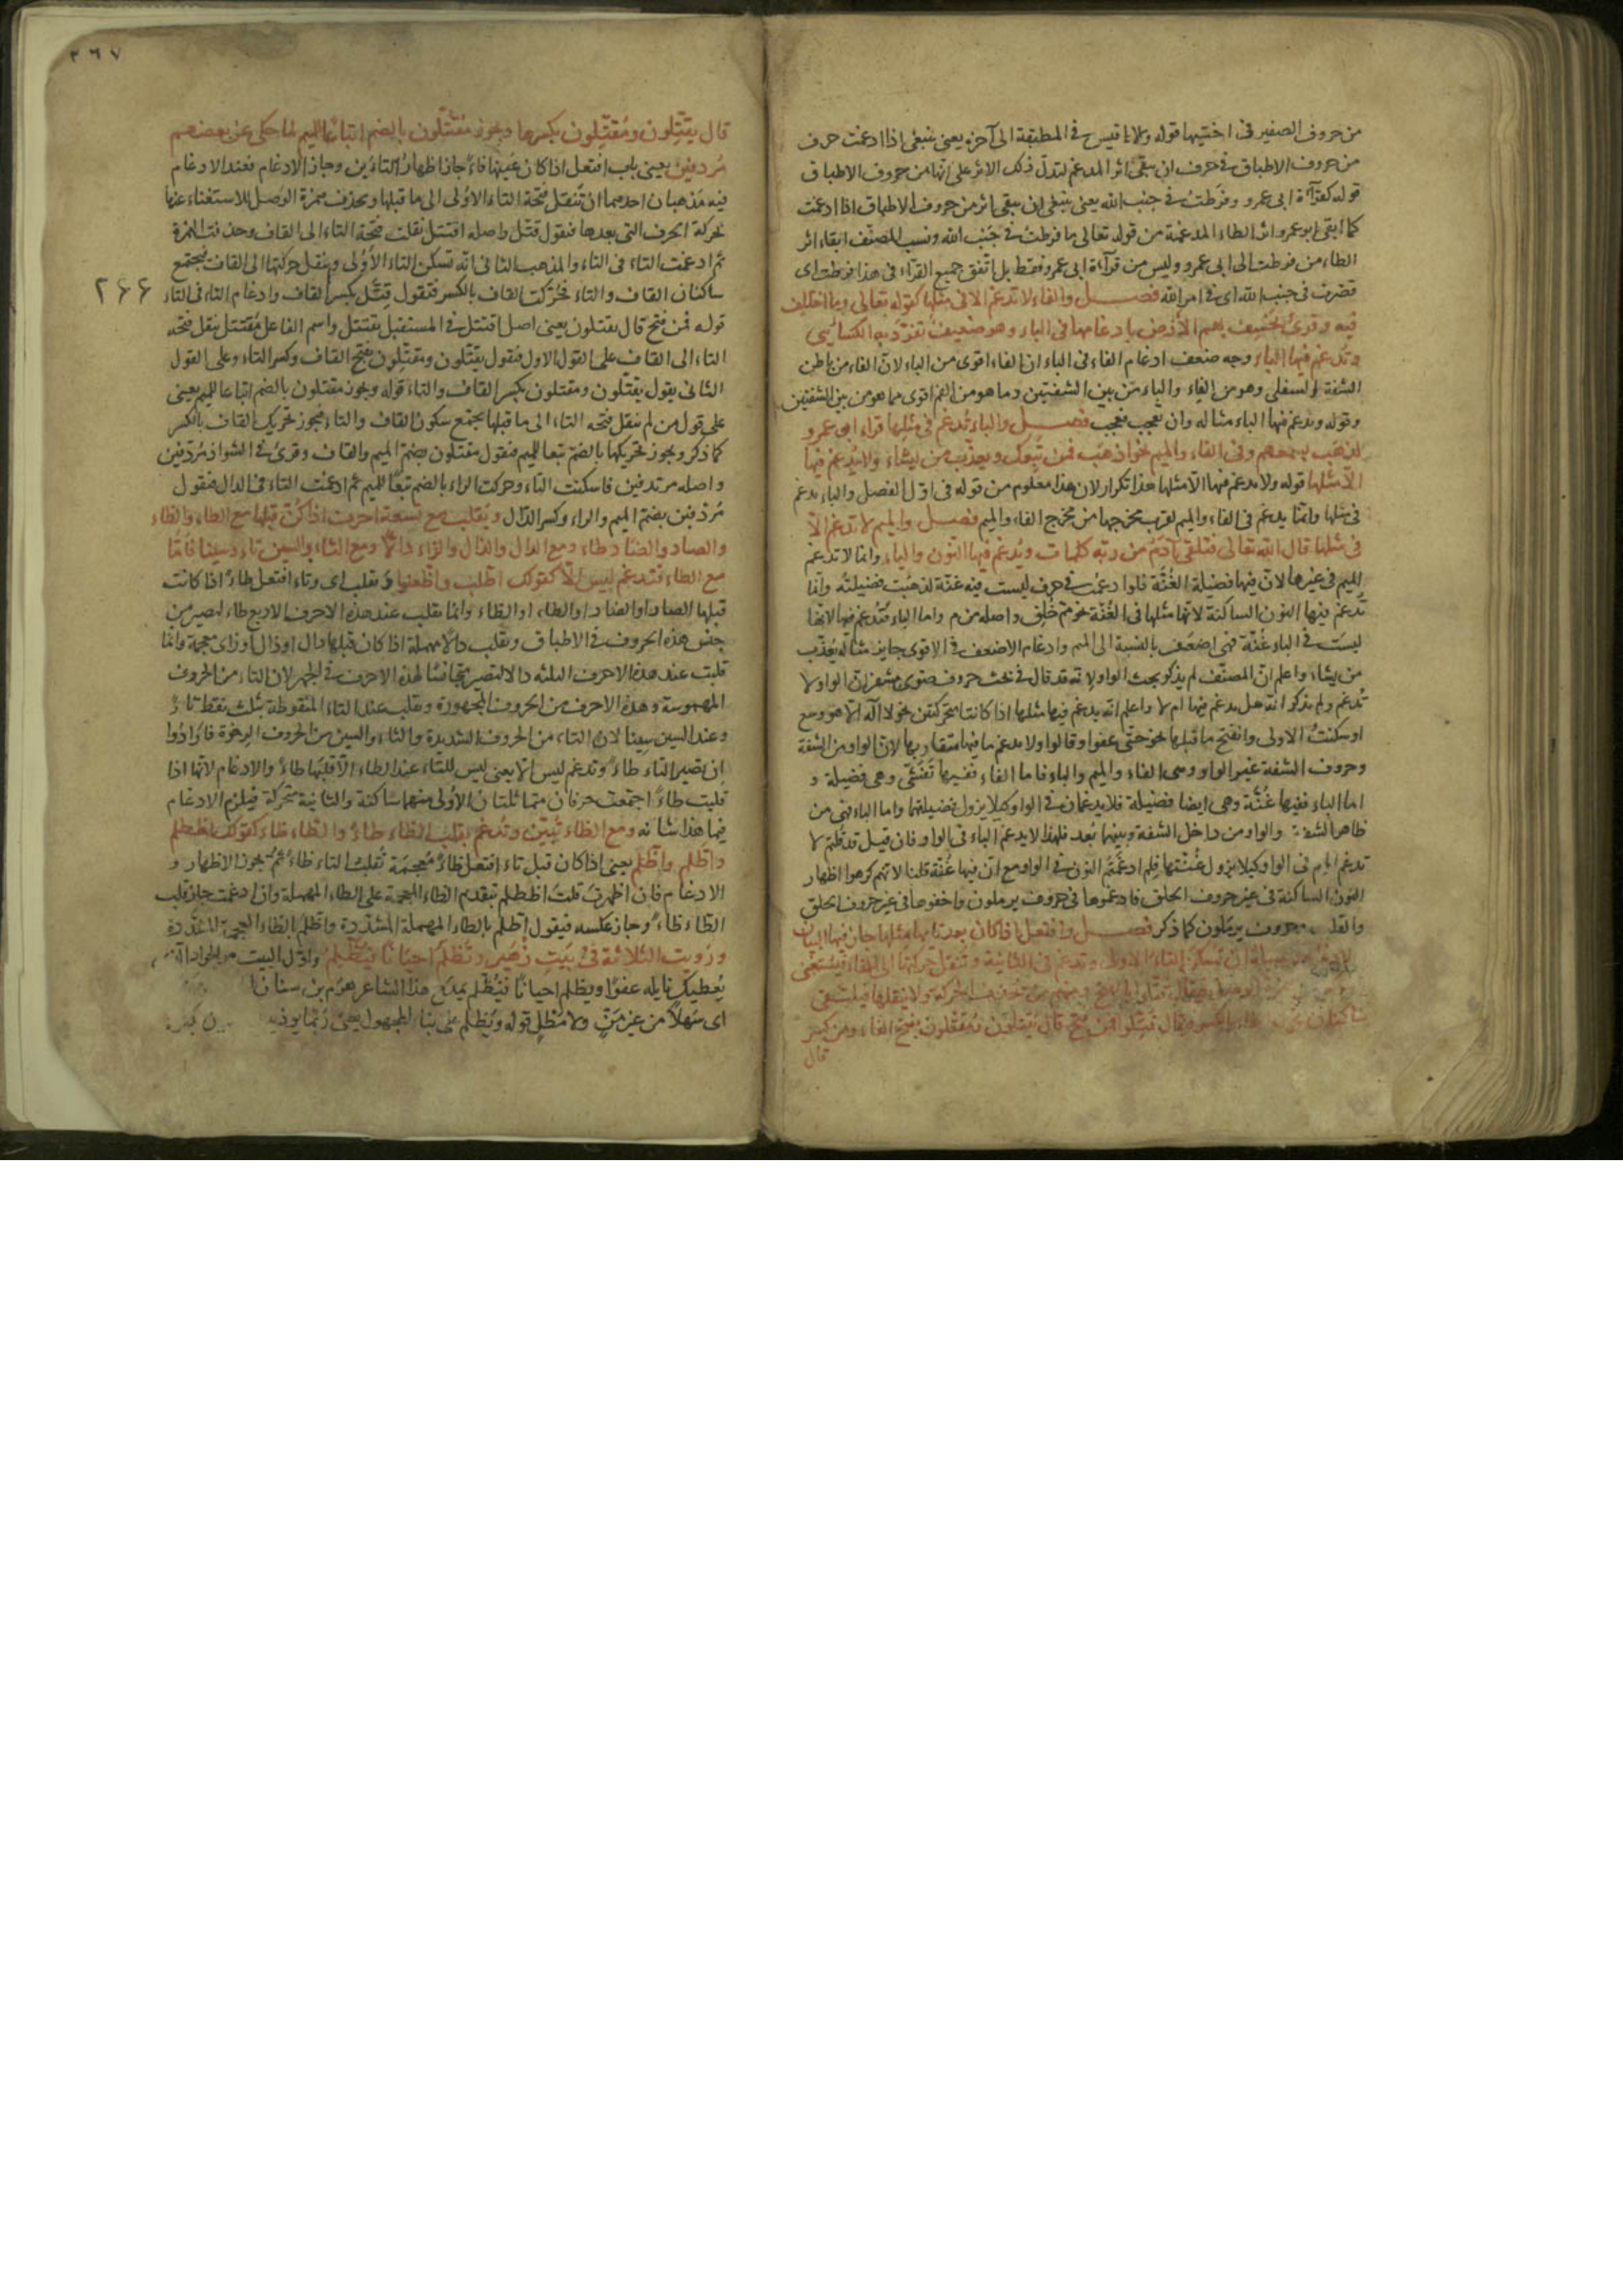 من حروف الصفير في اختيها قوله ولا باقيس في المطبقة الى آخره يعنى ينبغى اذا ادغمت حرف
من حروف الاطباق في حرف ان يبقى اثر المدغم ليدل ذلك الاثر على انها من حروف الاطباق
قوله كقرآءة ابى عمرو وفرطت في جنب الله يعنى ينبغى ان يبقى اثر من حروف الاطباق اذا ادغمت
كما ابقى ابو عمرو اثر الطاء المدغمة من قوله تعالى ما فرطت في جنب الله ونسب المصنف ابقاء اثر
الطاء من فرطت الى ابى عمرو وليس من قرآءة ابى عمرو فقط بل اتفق جميع القرآء فى هذا فرطت اى
قصرت فى جنب الله اى في امر الله فصل والفاء لا تدغم الا فى مثلها كقوله تعالى وما اختلف
فيه وقرئ نخسف بهم الارض بادغامها فى الباء وهو ضعيف تفرد به الكسائى
وتدغم فيها الباء وجه ضعف ادغام الفاء فى الباء ان الفاء اقوى من الباء لان الفاء من باطن
الشفة السفلى وهو من الفاء والباء من بين الشفتين وما هو من الفم اقوى مما هو من بين الشفتين
وقوله وتدغم فيها الباء مثاله وان تعجب فعجب فصل والباء تدغم فى مثلها قراء ابو عمرو
لذهب بسمعهم وفى الفاء والميم نحو اذهب فمن تبعك ويعذب من يشاء ولا يدغم فيها
الا مثلها قوله ولا يدغم فيها الا مثلها هذا تكرار لان هذا معلوم من قوله فى اول الفصل والباء تدغم
فى مثلها وانما يدغم فى الفاء والميم لقرب مخرجها من مخرج الفاء والميم فصل والميم لا تدغم الا
فى مثلها قال الله تعالى فتلقى آدم من ربه كلمات وتدغم فيها النون والباء وانما لا تدغم
الميم فى غيرها لان فيها فضيلة الغنة فلو ادغمت في حرف ليست فيه غنة لذهبت فضيلته وانما
تدغم فيها النون الساكنة لانها مثلها فى الغنة نحو مم خلق واصله من م واما الباء فتدغم فيها لانها
ليست في الباء غنة فهى اضعف بالنسبة الى الميم وادغام الاضعف في الاقوى جايز مثاله يعذب
من يشاء واعلم ان المصنف لم يذكر بحث الواو لانه قد قال في بحث حروف ضوى مشفر ان الواو لا
تدغم ولم يذكر انه هل يدغم فيها ام لا واعلم انه يدغم فيها مثلها اذا كانتا متحركتين نحو لا اله الا هو وسع
او سكنت الاولى وانفتح ما قبلها نحو حتى عفوا وقالوا ولا يدغم ما فيها متقاربها لان الواو من الشفة
وحروف الشفة غير الواو وهى الفاء والميم والباء فاما الفاء ففيها تفشى وهى فضيلة و
اما الباء ففيها غنة وهى ايضا فضيلة فلا يدغمان في الواو كيلا يزول فضيلتها واما الباء فهى من
ظاهر الشفة والواو من داخل الشفة وبينهما بعد فلهذا لا يدغم الباء فى الواو فان قيل قد قلتم لا
تدغم الميم فى الواو كيلا يزول غنتها فلم ادغمتم النون في الواو مع ان فيها غنة قلنا لانهم كرهوا اظهار
النون الساكنة فى غير حروف الحلق فادغموها فى حروف يرملون واخفوها فى غير حروف الحلق
والقلب حروف يرملون كما ذكر فصل وافتعل اذا كان بعد تائها مثلها جاز فيها البيان
ان تسكن التاء الاولى وتدغم فى الثانية وتنقل حركتها الى الفاء فيستغنى
فيقال قتلوا بالفتح ومنهم من يحذف الحركة ولا ينقلها فيلتقى
ساكنان بالكسر فيقال قتلوا فمن فتح قال يقتلون ومقتلون بفتح الفاء ومن كسر
قال
٢٦٧
قال يقتلون ومقتلون بكسرها ويجوز مقتلون بالضم اتباعا للميم لما حكى عن بعضهم
مردفين يعنى باب افتعل اذا كان عينها تاء جاز اظهار التاءين وجاز الادغام فعند الادغام
فيه مذهبان احدهما ان تنقل فتحة التاء الاولى الى ما قبلها ويحذف همزة الوصل للاستغناء عنها
بحركة الحرف التى بعدها فنقول قتل واصله اقتتل نقلت فتحة التاء الى القاف وحذفت الهمزة
ثم ادغمت التاء فى التاء والمذهب الثانى انه تسكن التاء الاولى ولا ينقل حركتها الى القاف فيجتمع
ساكنان القاف والتاء فحركت القاف بالكسر فتقول قتل بكسر القاف وادغام التاء فى التاء
٢٦٦
قوله فمن فتح قال يقتلون يعنى اصل اقتتل في المستقبل يقتتل واسم الفاعل مقتتل بنقل فتحة
التاء الى القاف على القول الاول فنقول يقتلون ومقتلون بفتح القاف وكسر التاء وعلى القول
الثانى يقول يقتلون ومقتلون بكسر القاف والتاء قوله ويجوز مقتلون بالضم اتباعا للميم يعنى
على قول من لم ينقل فتحة التاء الى ما قبلها يجتمع سكون القاف والتاء فيجوز تحريك القاف بالكسر
كما ذكر ويجوز تحريكها بالضم تبعا للميم فنقول مقتلون بضم الميم والقاف وقرئ في الشواذ مردفين
واصله مرتدفين فاسكنت التاء وحركت الراء بالضم تبعا للميم ثم ادغمت التاء فى الدال فنقول
مردفين بضم الميم والراء وكسر الدال ويقلب مع تسعة احرف اذا كن قبلها مع الطاء والظاء
والصاد والضاد طاء ومع الدال والذال والزاء دالا ومع الثاء والسين ثاء وسينا فاما
مع الطاء فتدغم ليس الا كقولك اطلب واطعنوا وتقلب اى وتاء افتعل طاء اذا كانت
قبلها الصاد او الضاد او الطاء او الظاء وانما تقلب عند هذه الاحرف الاربع طاء لتصير من
جنس هذه الحروف في الاطباق وتقلب دالا مهملة اذا كان قبلها دال او ذال او زاى معجمة وانما
قلبت عند هذه الاحرف الثلثه دالا لتصير مجانسا لهذه الاحرف في الجهر لان التاء من الحروف
المهموسة وهذه الاحرف من الحروف المجهورة وتقلب عند الثاء المنقوطة بثلث نقط ثاء
وعند السين سينا لان التاء من الحروف الشديدة والثاء والسين من الحروف الرخوة فارادوا
ان تصير التاء طاء وتدغم ليس الا يعنى ليس للتاء عند الطاء الا قلبها طاء والادغام لانها اذا
قلبت طاء اجتمعت حرفان متماثلتان الاولى منهما ساكنة والثانية متحركة فيلزم الادغام
فيما هذا شانه ومع الظاء تبين وتدغم بقلب الظاء طاء والطاء ظاء كقولك اظطلم
واطلم واظلم يعنى اذا كان قبل تاء افتعل ظاء معجمة تقلب التاء طاء ثم يجوز الاظهار و
الادغام فان اظهرت قلت اظطلم بتقديم الظاء المعجمة على الطاء المهملة وان ادغمت جاز قلب
الظاء طاء وجاز عكسه فيقول اطلم بالطاء المهملة المشددة واظلم بالظاء المعجمة المشددة
ورويت الثلاثة فى بيت زهير ويظلم احيانا فيظطلم واول البيت هو الجواد الذى
يعطيك نايله عفوا ويظلم احيانا فيظلم يمدح هذا الشاعر هرم بن سنان
اى سهلا من غير من ولا مطل قوله ويظلم على بناء المجهول يعنى ربما